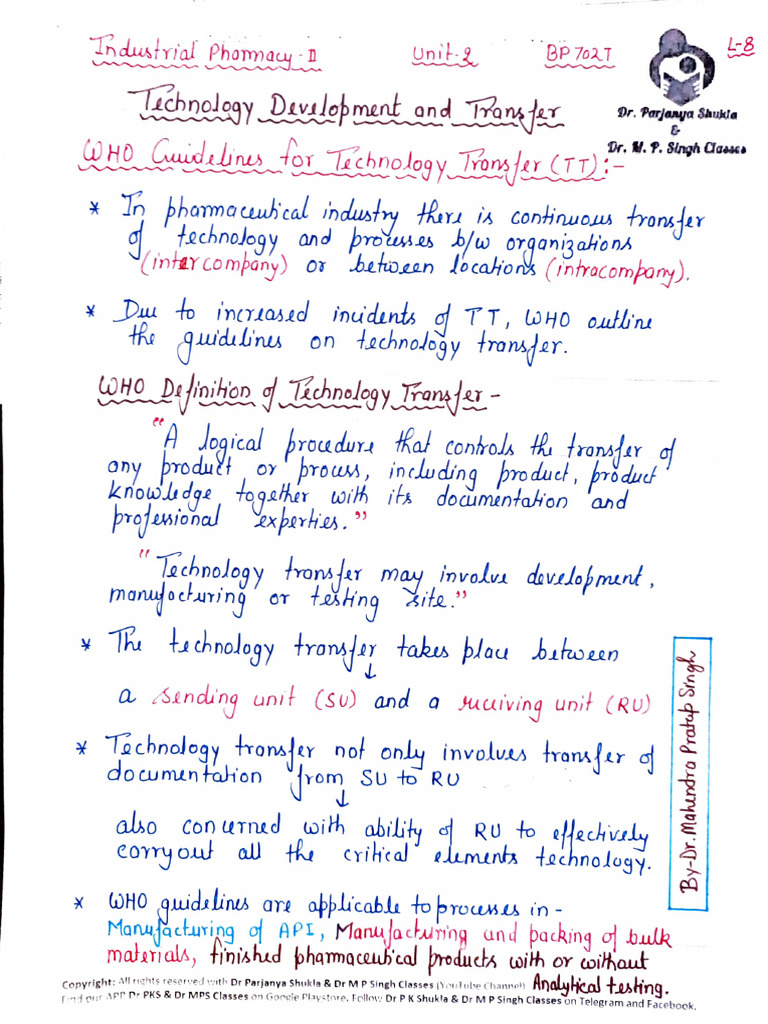 Industrial Pharmacy-II Unit-2 BP702T L-8
Dr. Parjanya Shukla
&
Dr. M. P. Singh Classes
Technology Development and Transfer
WHO Guidelines for Technology Transfer (TT):-
* In pharmaceutical industry there is continuous transfer
of technology and processes b/w organizations
(intercompany) or between locations (intracompany).
* Due to increased incidents of TT, WHO outline
the guidelines on technology transfer.
WHO Definition of Technology Transfer-
"A logical procedure that controls the transfer of
any product or process, including product, product
knowledge together with its documentation and
professional experties."
"Technology transfer may involve development,
manufacturing or testing site."
* The technology transfer takes place between
↓
a sending unit (SU) and a receiving unit (RU)
* Technology transfer not only involves transfer of
documentation from SU to RU
↓
also concerned with ability of RU to effectively
carryout all the critical elements technology.
* WHO guidelines are applicable to processes in-
Manufacturing of API, Manufacturing and packing of bulk
materials, finished pharmaceutical products with or without
Analytical testing.
By-Dr. Mahendra Pratap Singh
Copyright: All rights reserved with Dr Parjanya Shukla & Dr M P Singh Classes (YouTube Channel)
Find our APP Dr PKS & Dr MPS Classes on Google Playstore. Follow Dr P K Shukla & Dr M P Singh Classes on Telegram and Facebook.